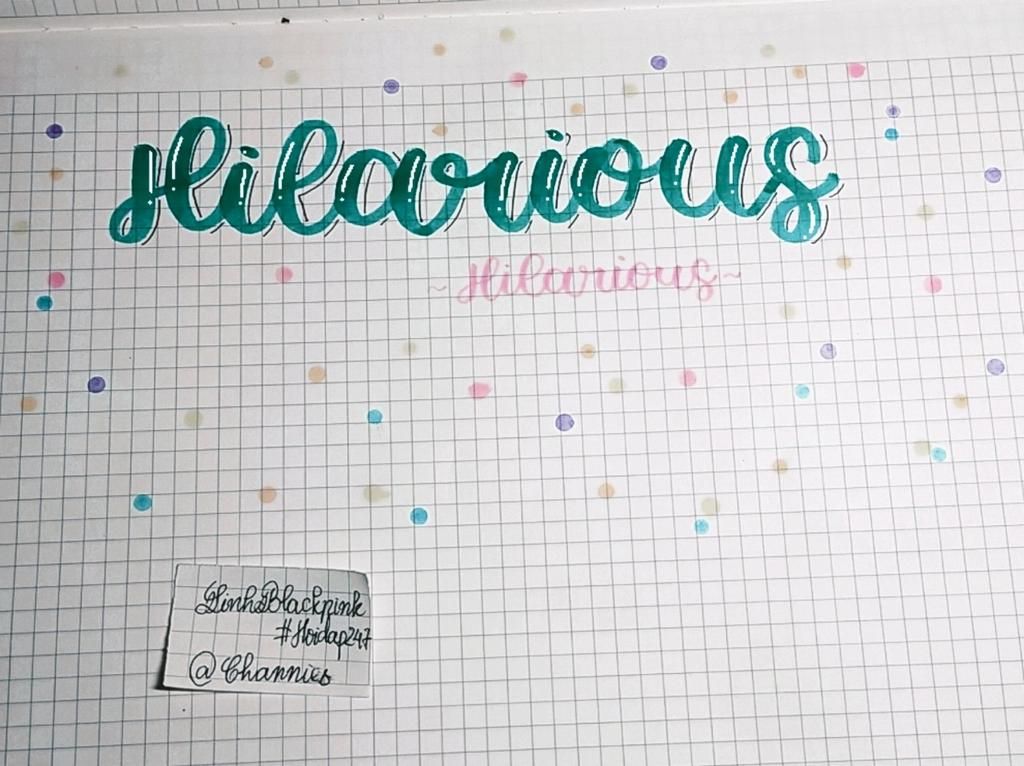 Hilarious
~Hilarious~
LinhBlackpink
#Hoidap247
@Channies